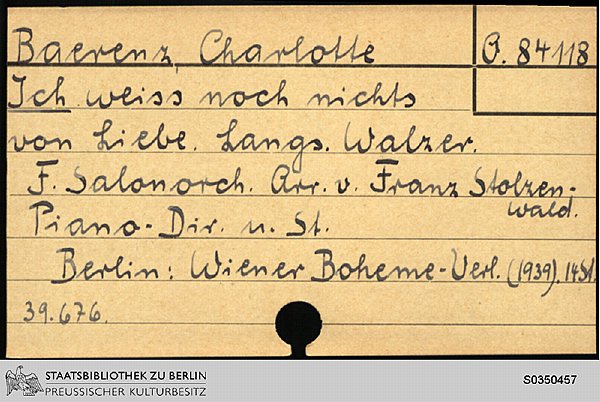 Baerenz, Charlotte
O. 84118
Ich weiss noch nichts
von Liebe. Langs. Walzer.
F. Salonorch. Arr. v. Franz Stolzen-
wald.
Piano-Dir. u. St.
Berlin: Wiener Boheme-Verl. (1939). 14 St.
39.676.
STAATSBIBLIOTHEK ZU BERLIN
PREUSSISCHER KULTURBESITZ
S0350457